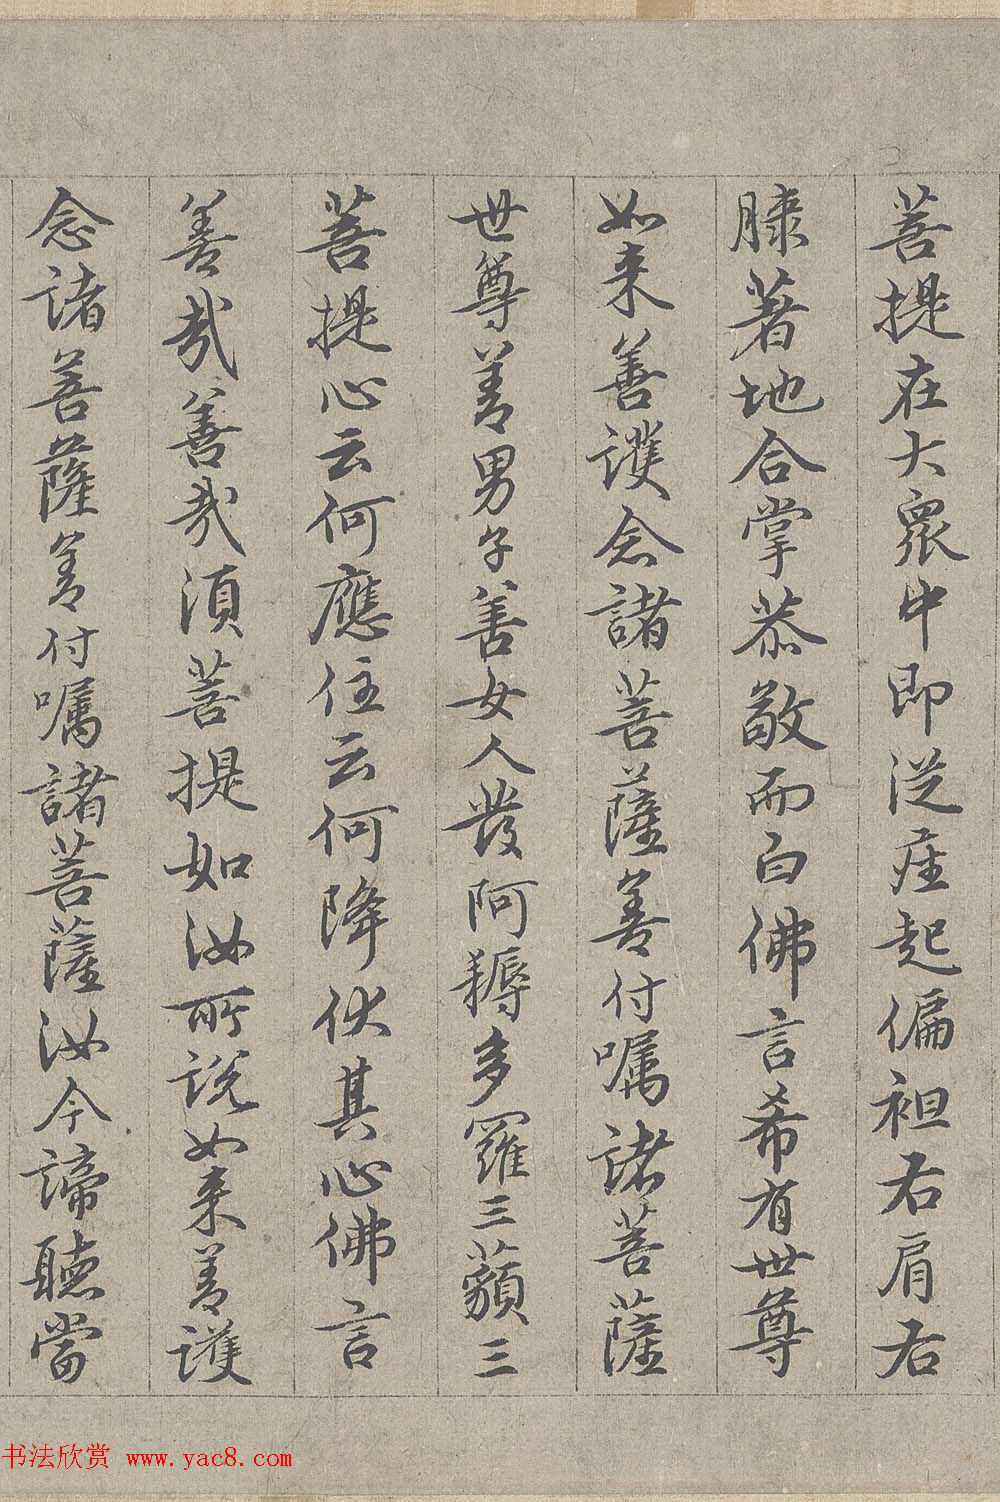 菩提在大衆中即從座起偏袒右肩右
膝著地合掌恭敬而白佛言希有世尊
如来善護念諸菩薩善付嘱諸菩薩
世尊善男子善女人發阿耨多羅三藐三
菩提心云何應住云何降伏其心佛言
善哉善哉湏菩提如汝所說如来善護
念諸菩薩善付嘱諸菩薩汝今諦聽當
书法欣赏 www.yac8.com